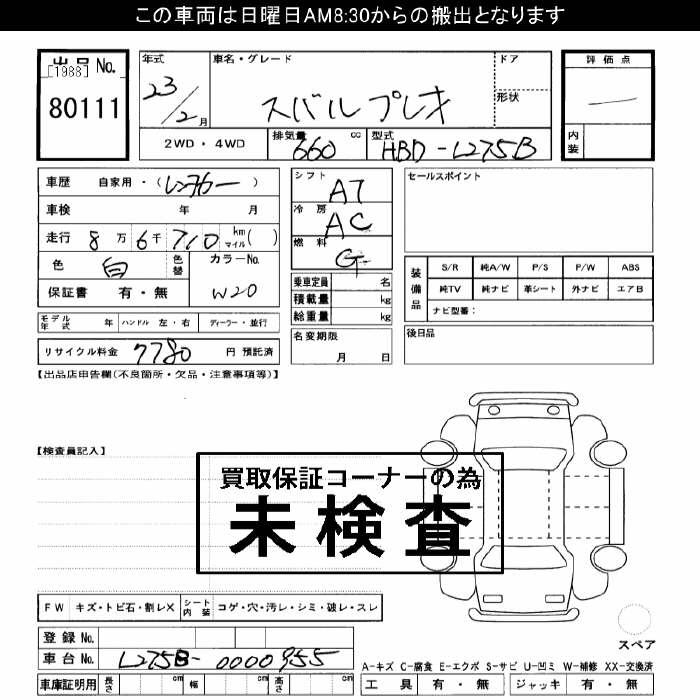 この車両は日曜日AM8:30からの搬出となります
出品No.
[1988]
80111
年式
23/2月
車名・グレード
スバルプレオ
ドア
形状
評価点
内装
2WD・4WD
排気量 660 cc
型式 HBD-L275B
車歴 自家用・(レンタカー)
車検 年 月
走行 8万6千710 km マイル( )
色 白 色替 カラーNo. W20
保証書 有・無
シフト AT
冷房 AC
燃料 G
乗車定員 名
積載量 kg
総重量 kg
セールスポイント
装備品
S/R 純A/W P/S P/W ABS
純TV 純ナビ 革シート 外ナビ エアB
ナビ型番:
モデル年式 年 ハンドル 左・右 ディーラー・並行
リサイクル料金 7780 円 預託済
名変期限 月 日
後日品
【出品店申告欄(不良箇所・欠品・注意事項等)】
【検査員記入】
買取保証コーナーの為
未検査
FW キズ・トビ石・割レX シート内装 コゲ・穴・汚レ・シミ・破レ・スレ
登録No.
車台No. L275B-0000955
車庫証明用 長さ cm 幅 cm 高さ cm
スペア
A-キズ C-腐食 E-エクボ S-サビ U-凹ミ W-補修 XX-交換済
工具 有・無 ジャッキ 有・無